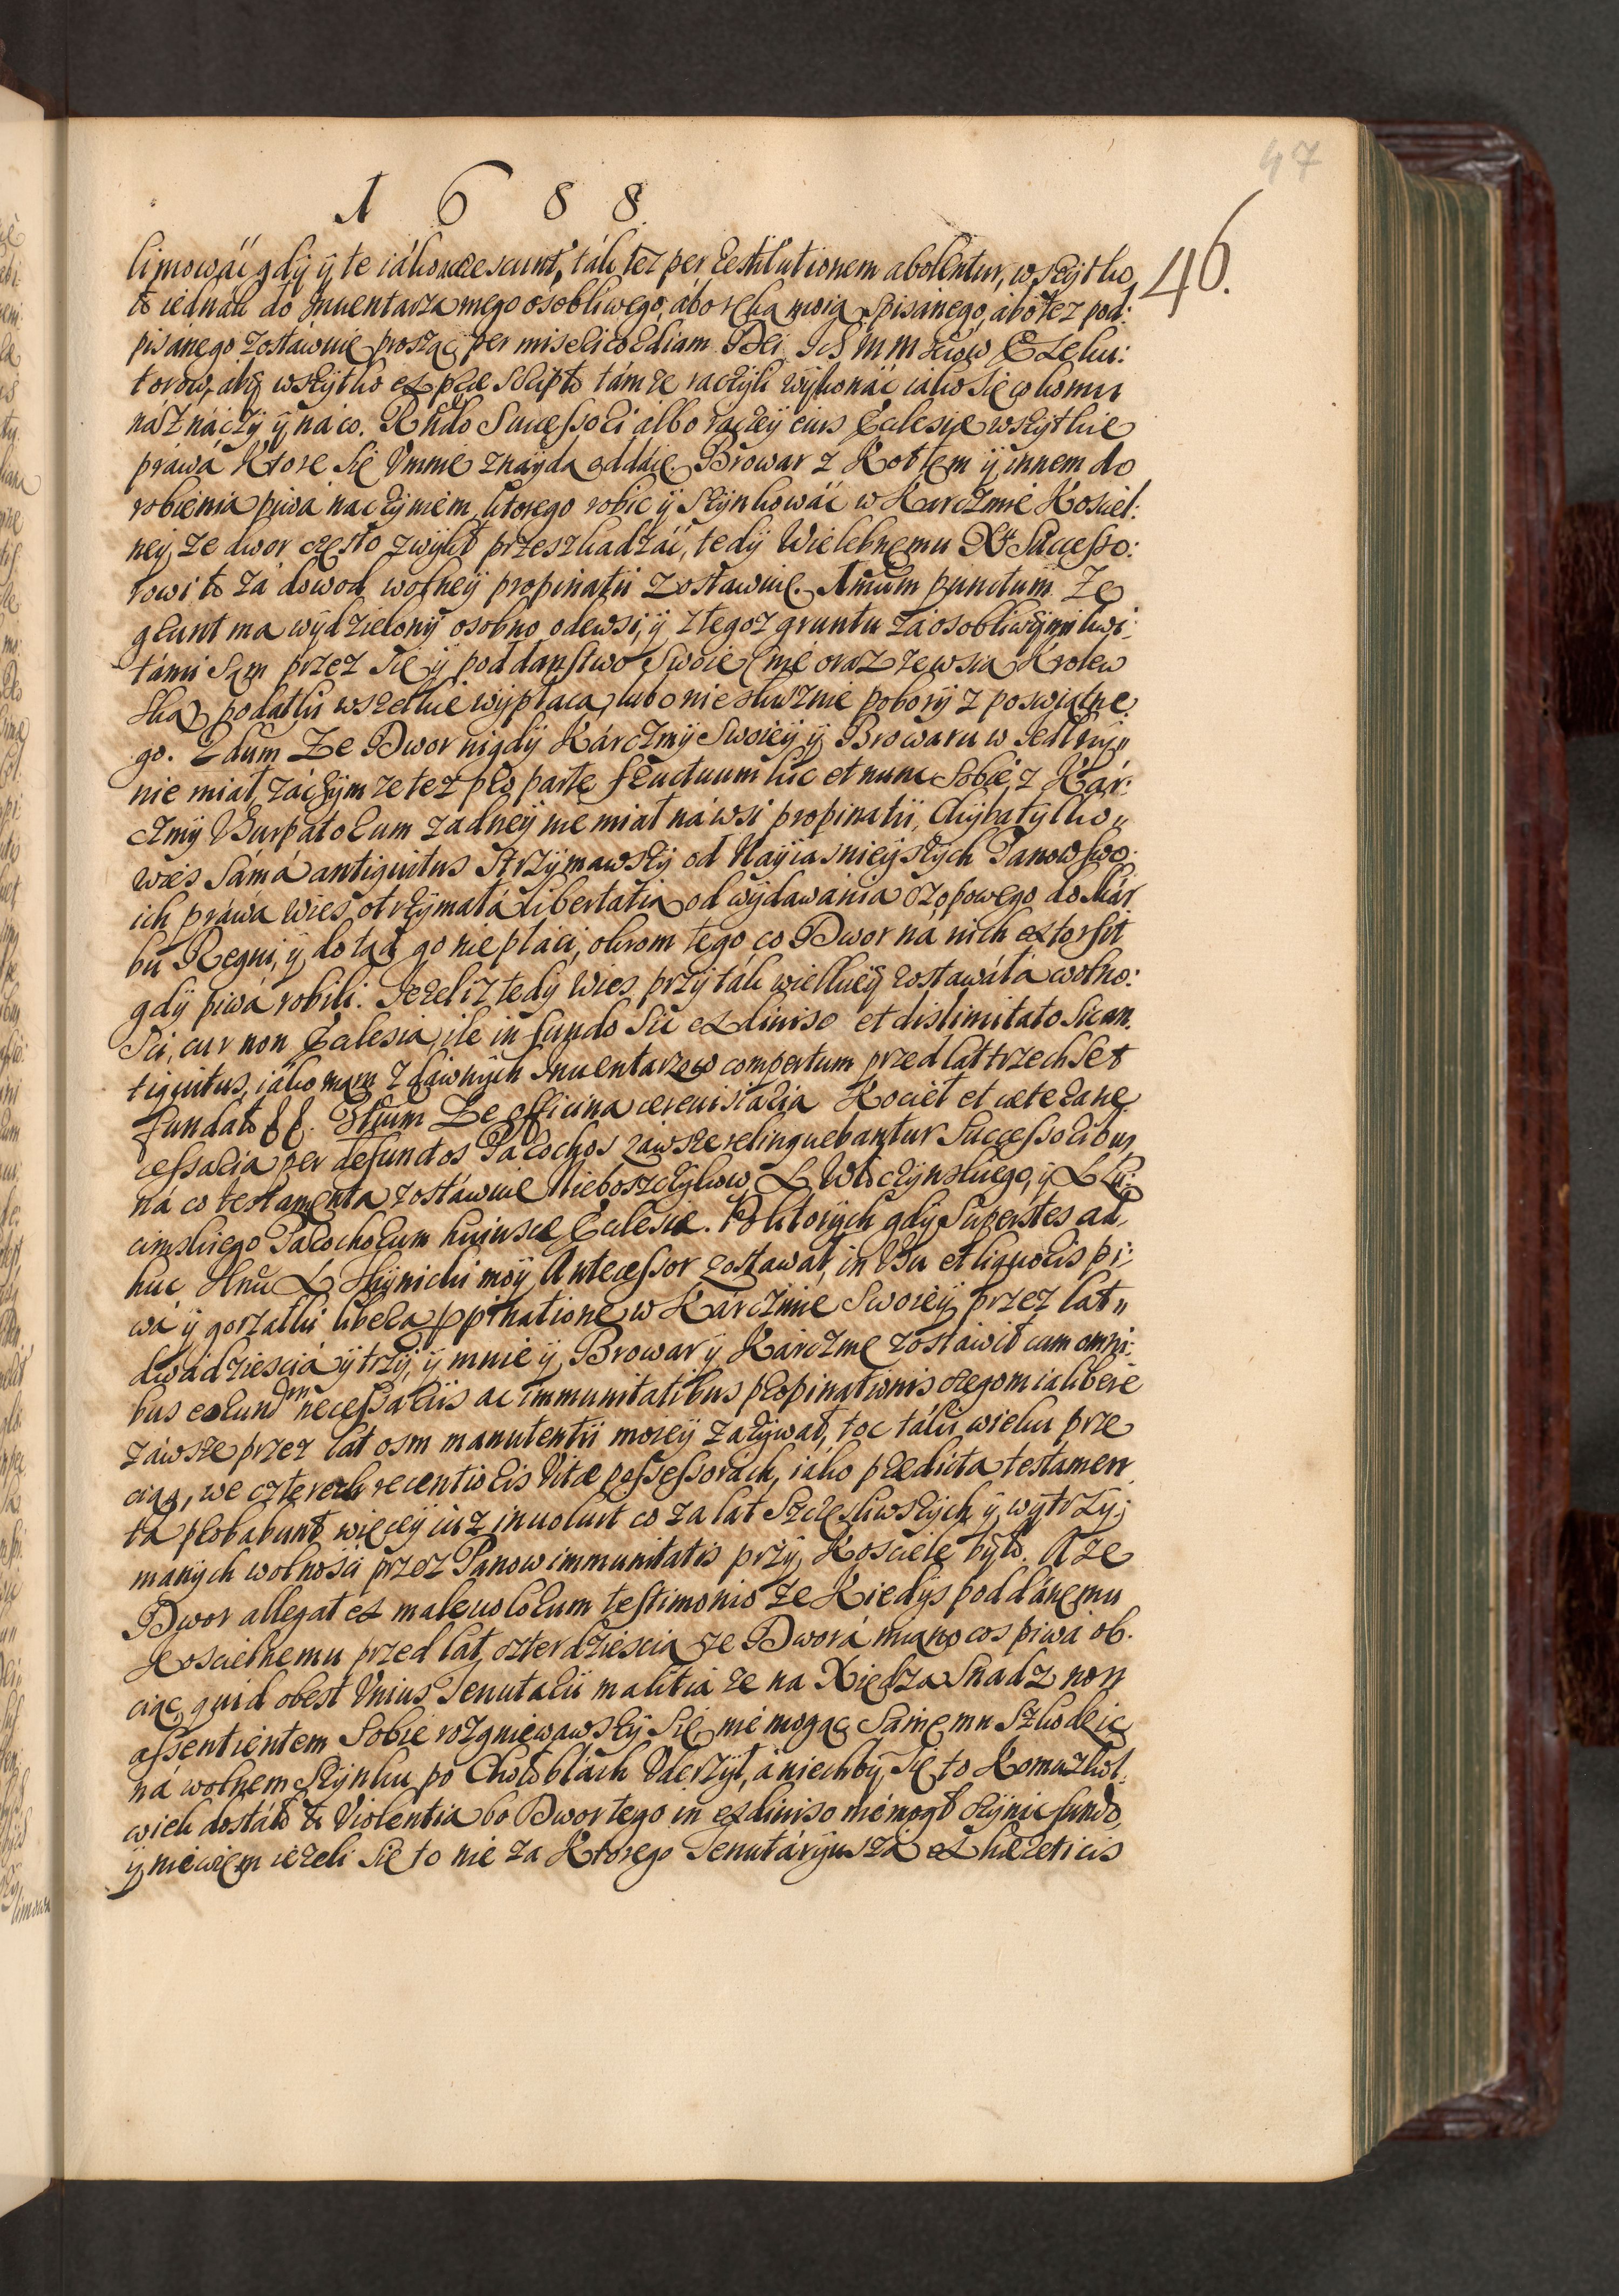 47
1 6 8 8.
46.
limowáć gdÿ ÿ te iáko accrescunt, ták tez per restitutionem abolentur, wszÿtko
to iednák do Inuentarza mego osobliwego, ábo ręką moią spisánego, ábo tez pod:
pisánego zostáwuię prosząc per misericordiam Dei Ich M M Exeku:
torow, abÿ wszÿtko ex præscripto támze raczÿli wÿkonáć iáko się komu
náznáczÿ ÿ náco. Rndo Successori álbo raczeÿ eius Ecclesiæ wszÿtkie
práwá Ktore się Vmnie znáÿdą oddáię. Browar z Kotłem ÿ innem do
robienia piwá naczÿniem, ktorego robić ÿ szÿnkowáć w Karczmie Kosciel:
neÿ, ze dwor często zwÿkł przeszkadzáć, tedÿ Wielebnemu Xdzu Successo:
rowi to zá dowod wolneÿ propinatii zostawuię. 1mum punctum Ze
grunt ma wÿdzielonÿ osobno odewsi, ÿ z tegoz gruntu zá osobliwÿmi kwi:
támi sam przez się ÿ poddaństwo swoie (nie oraz ze wsią Krolew
ską) podatki wszelkie wÿpłaca, lubo niesłusznie poborÿ z poswiątne:
go. 2dum Ze Dwor nigdÿ Kárczmÿ swoieÿ ÿ Browaru w Jedlnÿ"
nie miał, záczÿm ze tez pro parte fructuum huc et nunc sobie z Kár:
czmÿ Vsurpatorum zadneÿ nie miał ná wsi propinatii, chÿba tÿlko"
wies sámá antiquitus Otrzÿmawszÿ od Naÿiasnieÿszÿch Panow swo:
ich práwa wies otrzÿmałá libertatią od wÿdawánia czopowego do skár
bu Regni, ÿ dotąd go nie płáci, okrom tego co Dwor ná nich extorsit
gdÿ piwá robili. Jezeliz tedÿ wies przÿ ták wielkieÿ zostawáłá wolno:
sci, cur non Ecclesia, ile in fundo sic ex diuiso et dislimitato sic an
tiquitus, iáko mam z dawnÿch Inuentarzow compertum przed lat trzech set
fundato ff. 3tium Ze officina cereuisiaria Kocieł et cætera ne
cessaria per defunctos Parochos záwsze relinquebantur Successoribus
ná co testamenta zostáwuię Nieboszczÿkow X Włoczÿnskiego, ÿ X
cimskiego Parochorum huiusce Ecclesiæ. Po ktorÿch gdÿ superstes ad
huc X Hÿnicki moÿ Antecessor zostawał, in Vsu et liquoris pi:
wá ÿ gorzałki libera ppinatione w Kárczmie swoieÿ przez lat"
dwádziesciá ÿ trzÿ, ÿ mnie ÿ Browar ÿ Kárczmę zostáwił cum omni:
bus eorundm necessariis ac immunitatibus propinationis czegom ia libere
záwsze przez lat osm manutentii moieÿ zazÿwał, toc ták wieku prze
ciąg, we czterech recentioris Vitæ possessorách, iáko prædicta testamen
ta probabunt więceÿ iuz inuoluit co za lat szczesliwszÿch ÿ wÿtrzÿ:
manÿch wolnosci przez Panow immunitatis przÿ Kosciele bÿło. A ze
Dwor allegat ex maleuolorum testimonio ze Kiedÿs poddánemu
Koscielnemu przed lat czterdziescią ze Dworá miano cos piwá ob.
ciąć, quid obest Vnius Tenutarii malitia ze na Xiędza snadz non
assentientem sobie rozgniewawszÿ się, nie mogąc samemu szkodzic
ná wolnem szÿnku po Chłobłách Vderzÿł, á niechbÿ się to Komuzkol:
wiek dostáło to Violentia bo Dwor tego in ex diuiso nie mogł czÿnic fundo,
ÿ nie wiem iezeli się to nie za Ktorego Tenutáriusza ex hæreticis